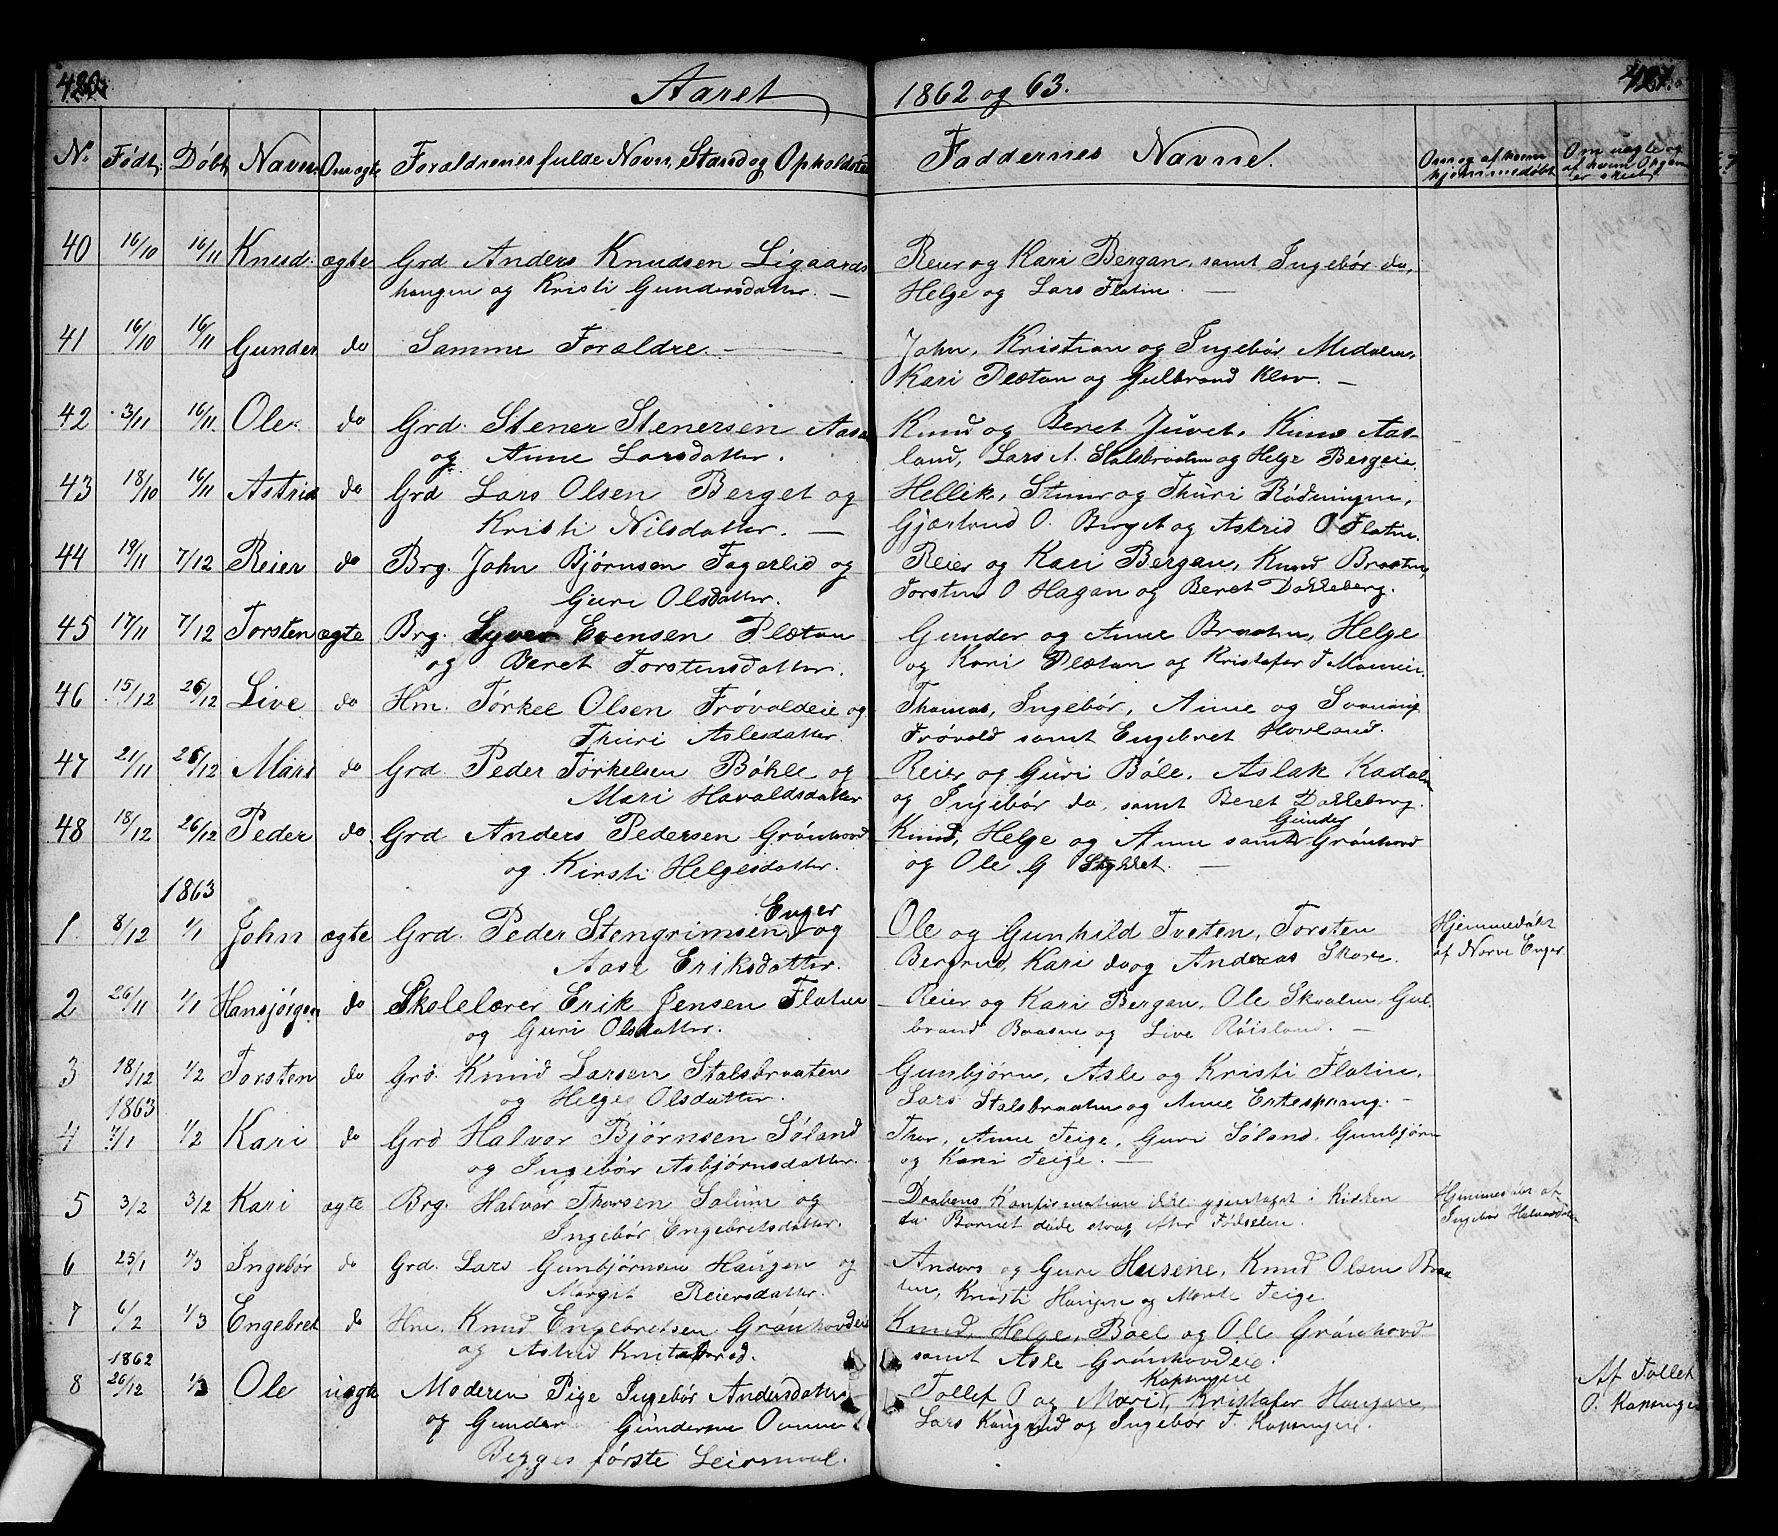 420. Aaret 1862 og 63. 421.
No. Født. Døbt Navn. Om ægte Forældrenes fulde Navn, Stand og Opholdsted Faddernes Navne. Om og af hvem hjemmedøbt Om uægte og af hvem Opgaven er skeet
40 16/10 16/11 Knud. ægte Grd Anders Knudsen Ligaards Reier og Kari Bergan, samt Ingebør do,
haugen og Kristi Gundersdatter. — Helge og Lars Flatin. —
41 16/10 16/11 Gunder do Samme Forældre. — John, Kristian og Ingebør Medalen,
Kari Plætan og Gulbrand Klev. —
42 3/11 16/11 Ole. do Grd. Stener Stenersen Aasa Knud og Beret Juvet, Knud Aas-
og Anne Larsdatter. land, Lars A. Stalsbraaten og Helge Bergeie.
43 18/10 16/11 Astrid do Grd Lars Olsen Berget og Hellik, Stener og Thuri Rødningen,
Kristi Nilsdatter. — Gjærtrud O. Berget og Astrid O Flatin.
44 19/11 7/12 Reier do Brg. John Bjørnsen Fagerlid og Reier og Kari Bergan, Knud Braaten,
Guri Olsdatter. Torsten O Hagan og Beret Dokkeberg.
45 17/11 7/12 Torsten ægte Brg. Syver Evensen Plætan Gunder og Anne Braaten, Helge
og Beret Torstensdatter. og Kari Plætan og Kristofer T
46 15/12 26/12 Live do Hm. Tørkel Olsen Frøvoldeie og Thomas, Ingebør, Anne og Svanaug
Thuri Aslesdatter. Frøvold samt Engebret Hovland.
47 21/11 26/12 Mari do Grd Peder Tørkelsen Bøhle og Reier og Guri Bøle, Aslak Kadalen
Mari Havaldsdatter og Ingebør do, samt Beret Dokkeberg.
48 18/12 26/12 Peder do Grd Anders Pedersen Grønhovd Knud, Helge og Anne samt Gunder Grønhovd
og Kirsti Helgesdatter. og Ole G Stykket. —
1863
1 8/12 1/1 John ægte Grd. Peder Stengrimsen Enger og Ole og Gunhild Tveten, Torsten Hjemmedøbt
Aase Eriksdatter. Bergrud, Kari do og Andreas Skare. af Narve Enger
2 26/11 1/1 Hansjørgen do Skolelærer Erik Jensen Flatin Reier og Kari Bergan, Ole Skaalen, Gul
og Guri Olsdatter. brand Braaten og Live Røisland. —
3 18/12 1/2 Torsten do Grd. Knud Larsen Stalsbraaten Gunbjørn, Asle og Kristi Flatin,
og Helge Olsdatter. Lars Stalsbraaten og Anne Ertesprang. —
1863
4 7/1 1/2 Kari do Grd Halvor Bjørnsen Søland Thor, Anne Teige, Guri Søland, Gunbjørn
og Ingebør Asbjørnsdatter. og Kari Teige. —
5 3/2 3/2 Kari ægte Brg. Halvor Thorsen Solum og Daabens Konfirmation ikke gjentaget i Kirken Hjemmedøbt af
Ingebør Engebretsdatter. da Barnet døde strax efter Fødselen. Ingebør Helmesdatter
6 25/1 1/3 Ingebør do Grd. Lars Gunbjørnsen Haugen og Anders og Guri Husene, Knud Olsen Braa
Margit Reiersdatter. ten, Kristi Haugen og Marit Teige.
7 6/2 1/3 Engebret do Hm. Knud Engebretsen Grønhovdeie Knud, Helge, Boel og Ole Grønhovd
og Astrid Knutsdatter. samt Asle Grønhovdeie.
1862
8 26/12 1/3 Ole uægte Moderen Pige Ingebør Andersdatter Tollef O og Mari Kopsengeie, Kristofer Haugen, Af Tollef
og Gunder Gundersen Lars og Ingebør T. Kopsengeie. O. Kopsengen
Begges første Leiermaal.